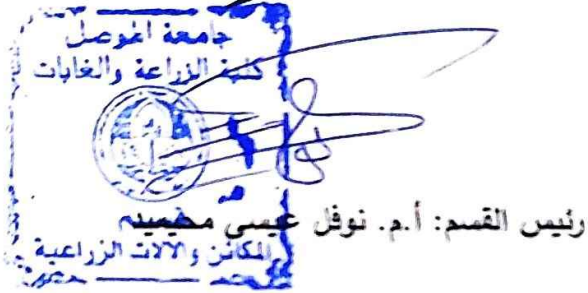 جامعة الموصل
كلية الزراعة والغابات
رئيس القسم: أ.م. نوفل عيسى محيميد
المكائن والآلات الزراعية